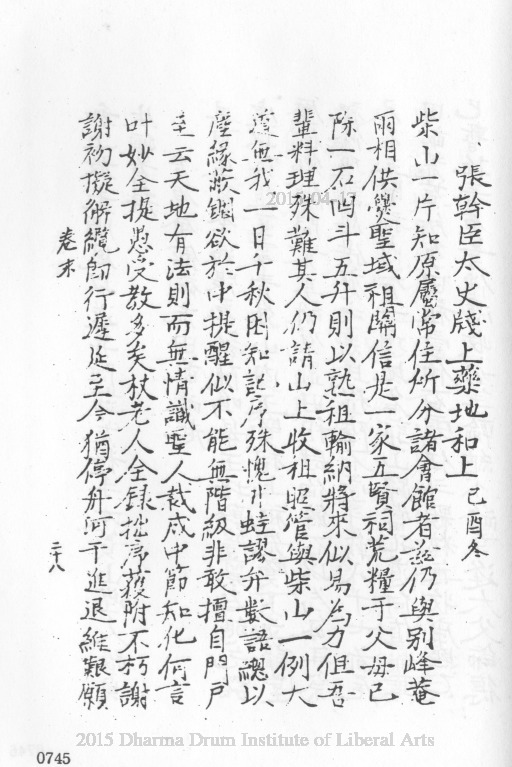 張幹臣太史牋上藥地和上 己酉冬
柴山一片知原屬常住所分諸會館者茲仍與別峰菴
兩相供奠聖域祖關信是一家五賢祠荒糧于父母已
除一石四斗五升則以孰租輸納將來似易為力但吾
輩料理殊難其人仍請山上收租照管與柴山一例大
道無我一日千秋困知記序殊愧小蛙謬弁數語總以
塵緣蔽錮欲於中提醒似不能無階級非敢擅自門戶
至云天地有法則而無情識聖人裁成中節知化何言
叶妙全提愚受教多矣杖老人全錄拙序獲附不朽謝
謝初擬解纜即行遲延至今猶停舟河干進退維艱願
卷末
二十八
0745
2015 Dharma Drum Institute of Liberal Arts